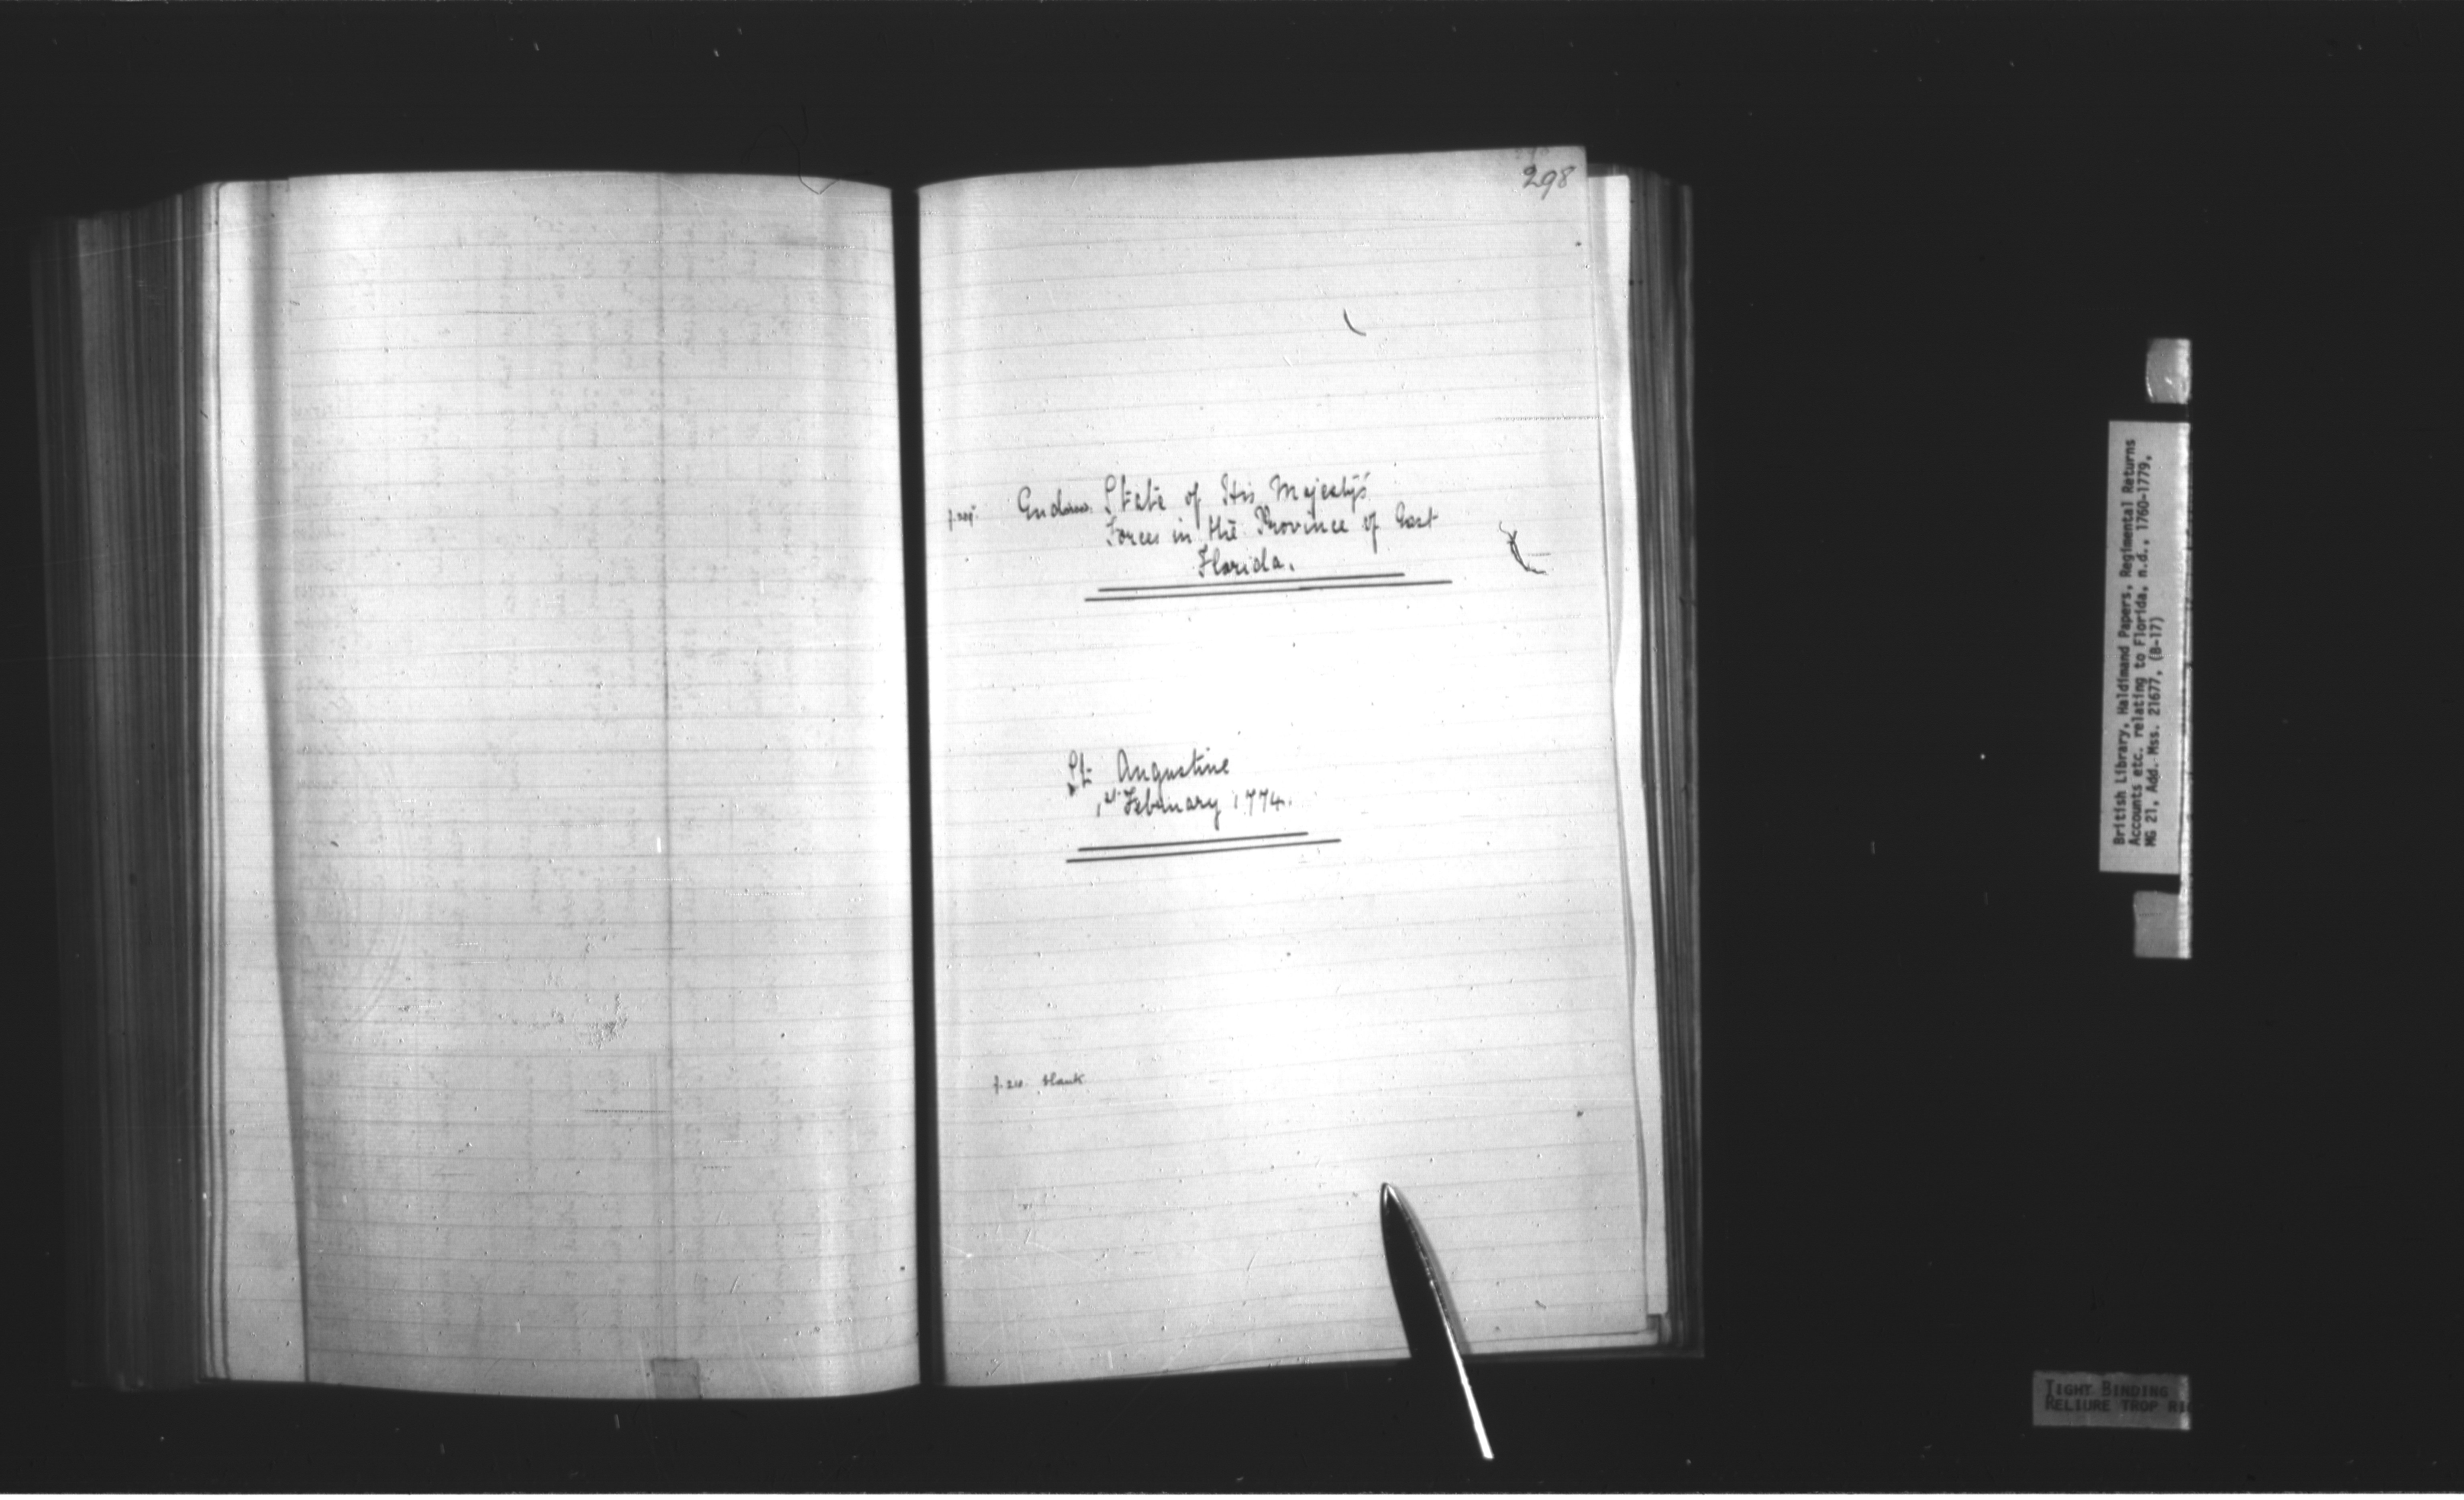 298
Endorsed State of His Majesty's
Forces in the Province of East
Florida.
St. Augustine
1st February 1774.
blank
British Library, Haldimand Papers, Regimental Returns
Accounts etc. relating to Florida, n.d., 1760-1779,
MG 21, Add. Mss. 21677, (B-17)
TIGHT BINDING
RELIURE TROP RI